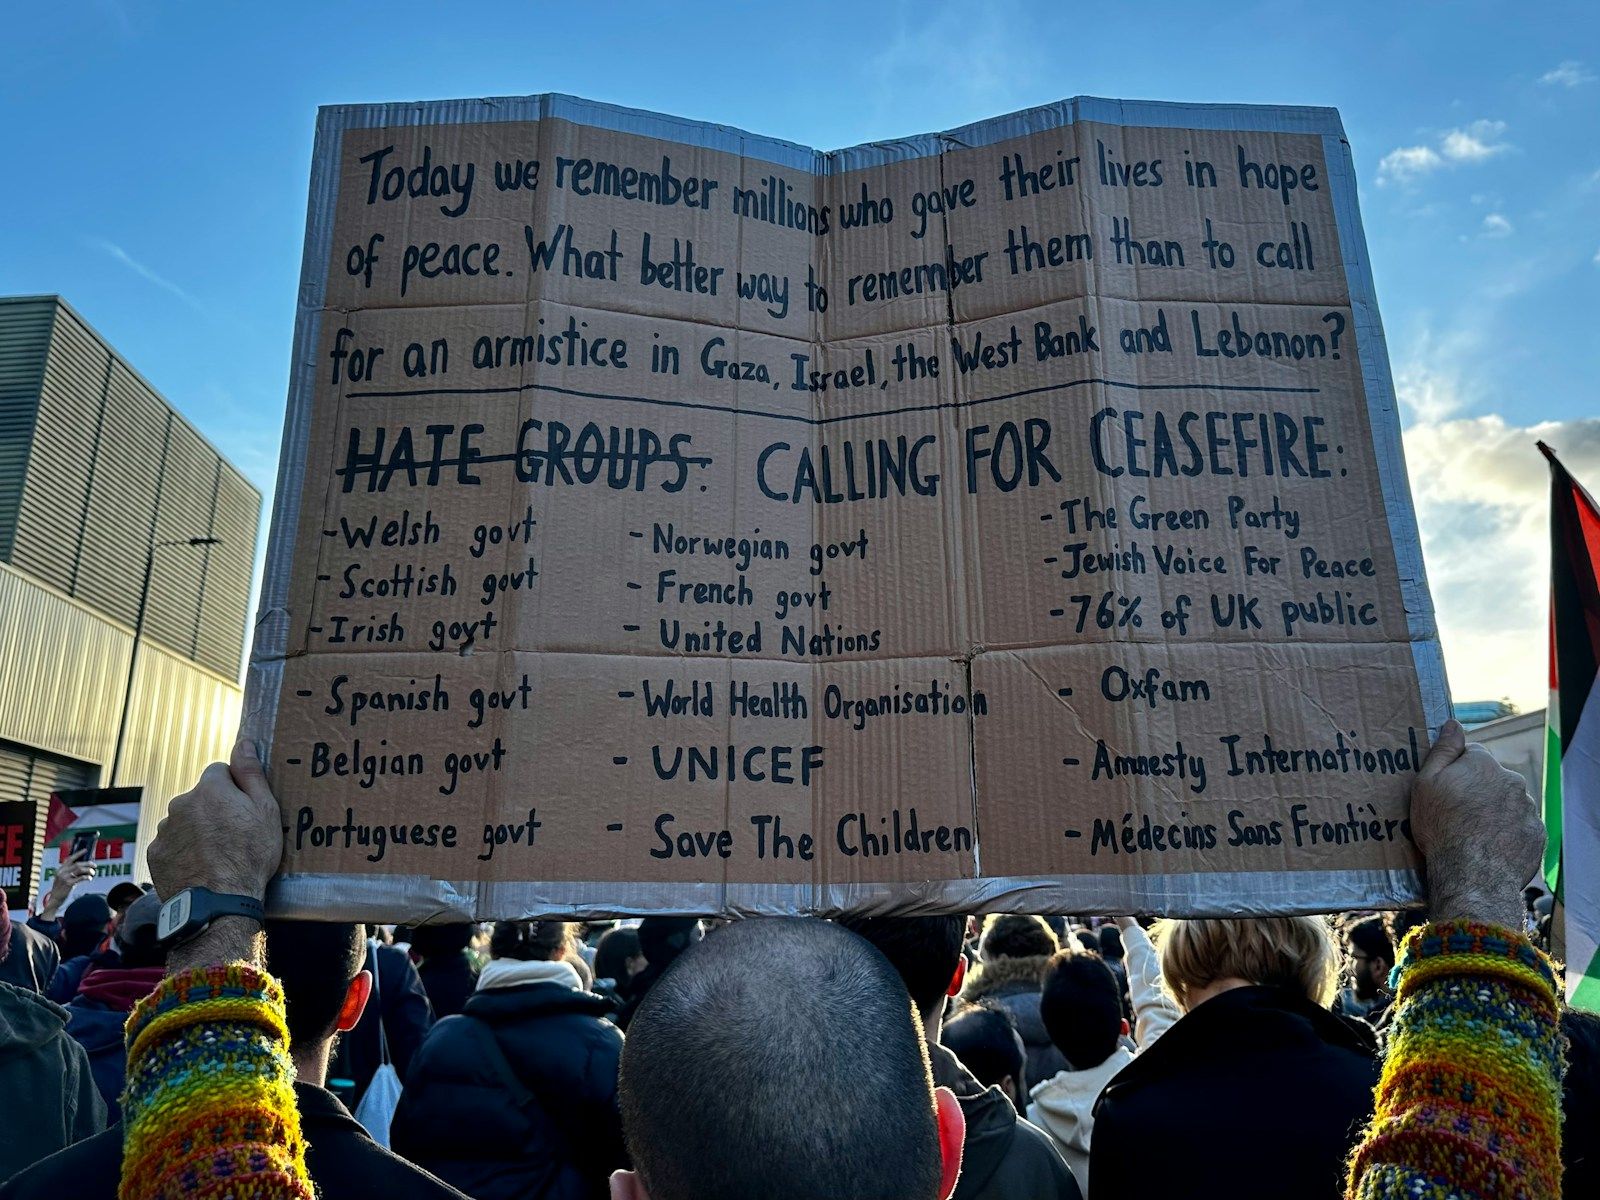 Today we remember millions who gave their lives in hope
of peace. What better way to remember them than to call
for an armistice in Gaza, Israel, the West Bank and Lebanon?
HATE GROUPS: CALLING FOR CEASEFIRE:
-Welsh govt
-Scottish govt
-Irish govt
- Spanish govt
-Belgian govt
-Portuguese govt
- Norwegian govt
- French govt
- United Nations
-World Health Organisation
- UNICEF
- Save The Children
-The Green Party
-Jewish Voice For Peace
-76% of UK public
- Oxfam
- Amnesty International
- Médecins Sans Frontièr